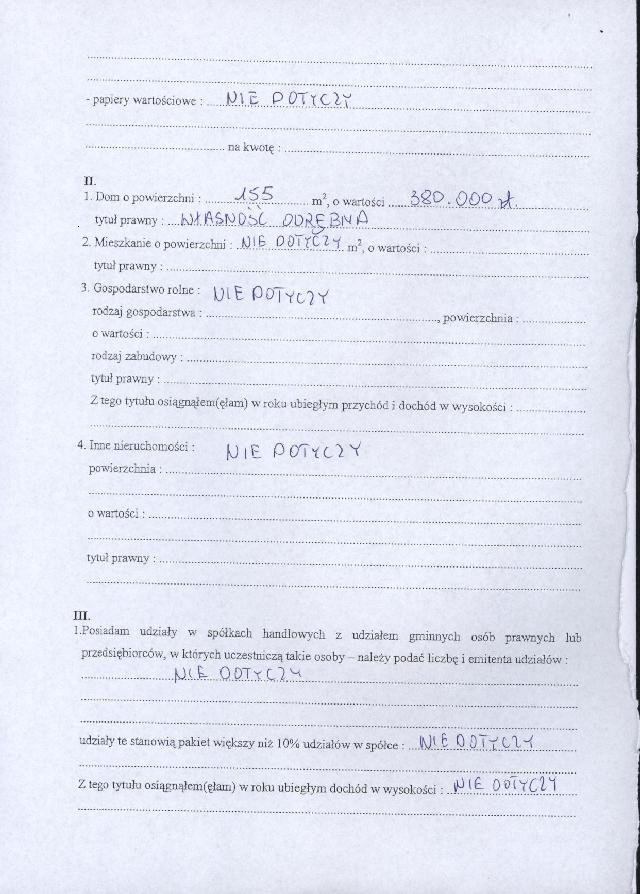 - papiery wartościowe : NIE DOTYCZY
na kwotę :
II.
1. Dom o powierzchni : 155 m², o wartości 380.000 zł
tytuł prawny : WŁASNOŚĆ ODRĘBNA
2. Mieszkanie o powierzchni : NIE DOTYCZY m², o wartości :
tytuł prawny :
3. Gospodarstwo rolne : NIE DOTYCZY
rodzaj gospodarstwa : , powierzchnia :
o wartości :
rodzaj zabudowy :
tytuł prawny :
Z tego tytułu osiągnąłem(ęłam) w roku ubiegłym przychód i dochód w wysokości :
4. Inne nieruchomości : NIE DOTYCZY
powierzchnia :
o wartości :
tytuł prawny :
III.
1.Posiadam udziały w spółkach handlowych z udziałem gminnych osób prawnych lub
przedsiębiorców, w których uczestniczą takie osoby – należy podać liczbę i emitenta udziałów :
NIE DOTYCZY
udziały te stanowią pakiet większy niż 10% udziałów w spółce : NIE DOTYCZY
Z tego tytułu osiągnąłem(ęłam) w roku ubiegłym dochód w wysokości : NIE DOTYCZY